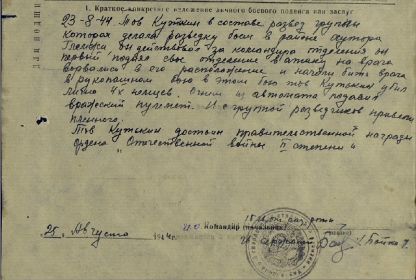 I. Краткое, конкретное изложение личного боевого подвига или заслуг
23-8-44 Тов Куткин в составе развед группы
которая делала разведку боем в районе хутора
он действовал за командира отделения он
первый поднял свое отделение в атаку на врага
ворвался в его расположение и начали бить врага
в рукопашном бою в этом бою тов Куткин убил
лично 4х немцев. Огнем из автомата подавил
вражский пулемет. И с группой разведчиков привели
пленного.
Тов Куткин достоин правительственной награды
Ордена "Отечественной войны II степени"
Командир (начальник)
25. Августа 194